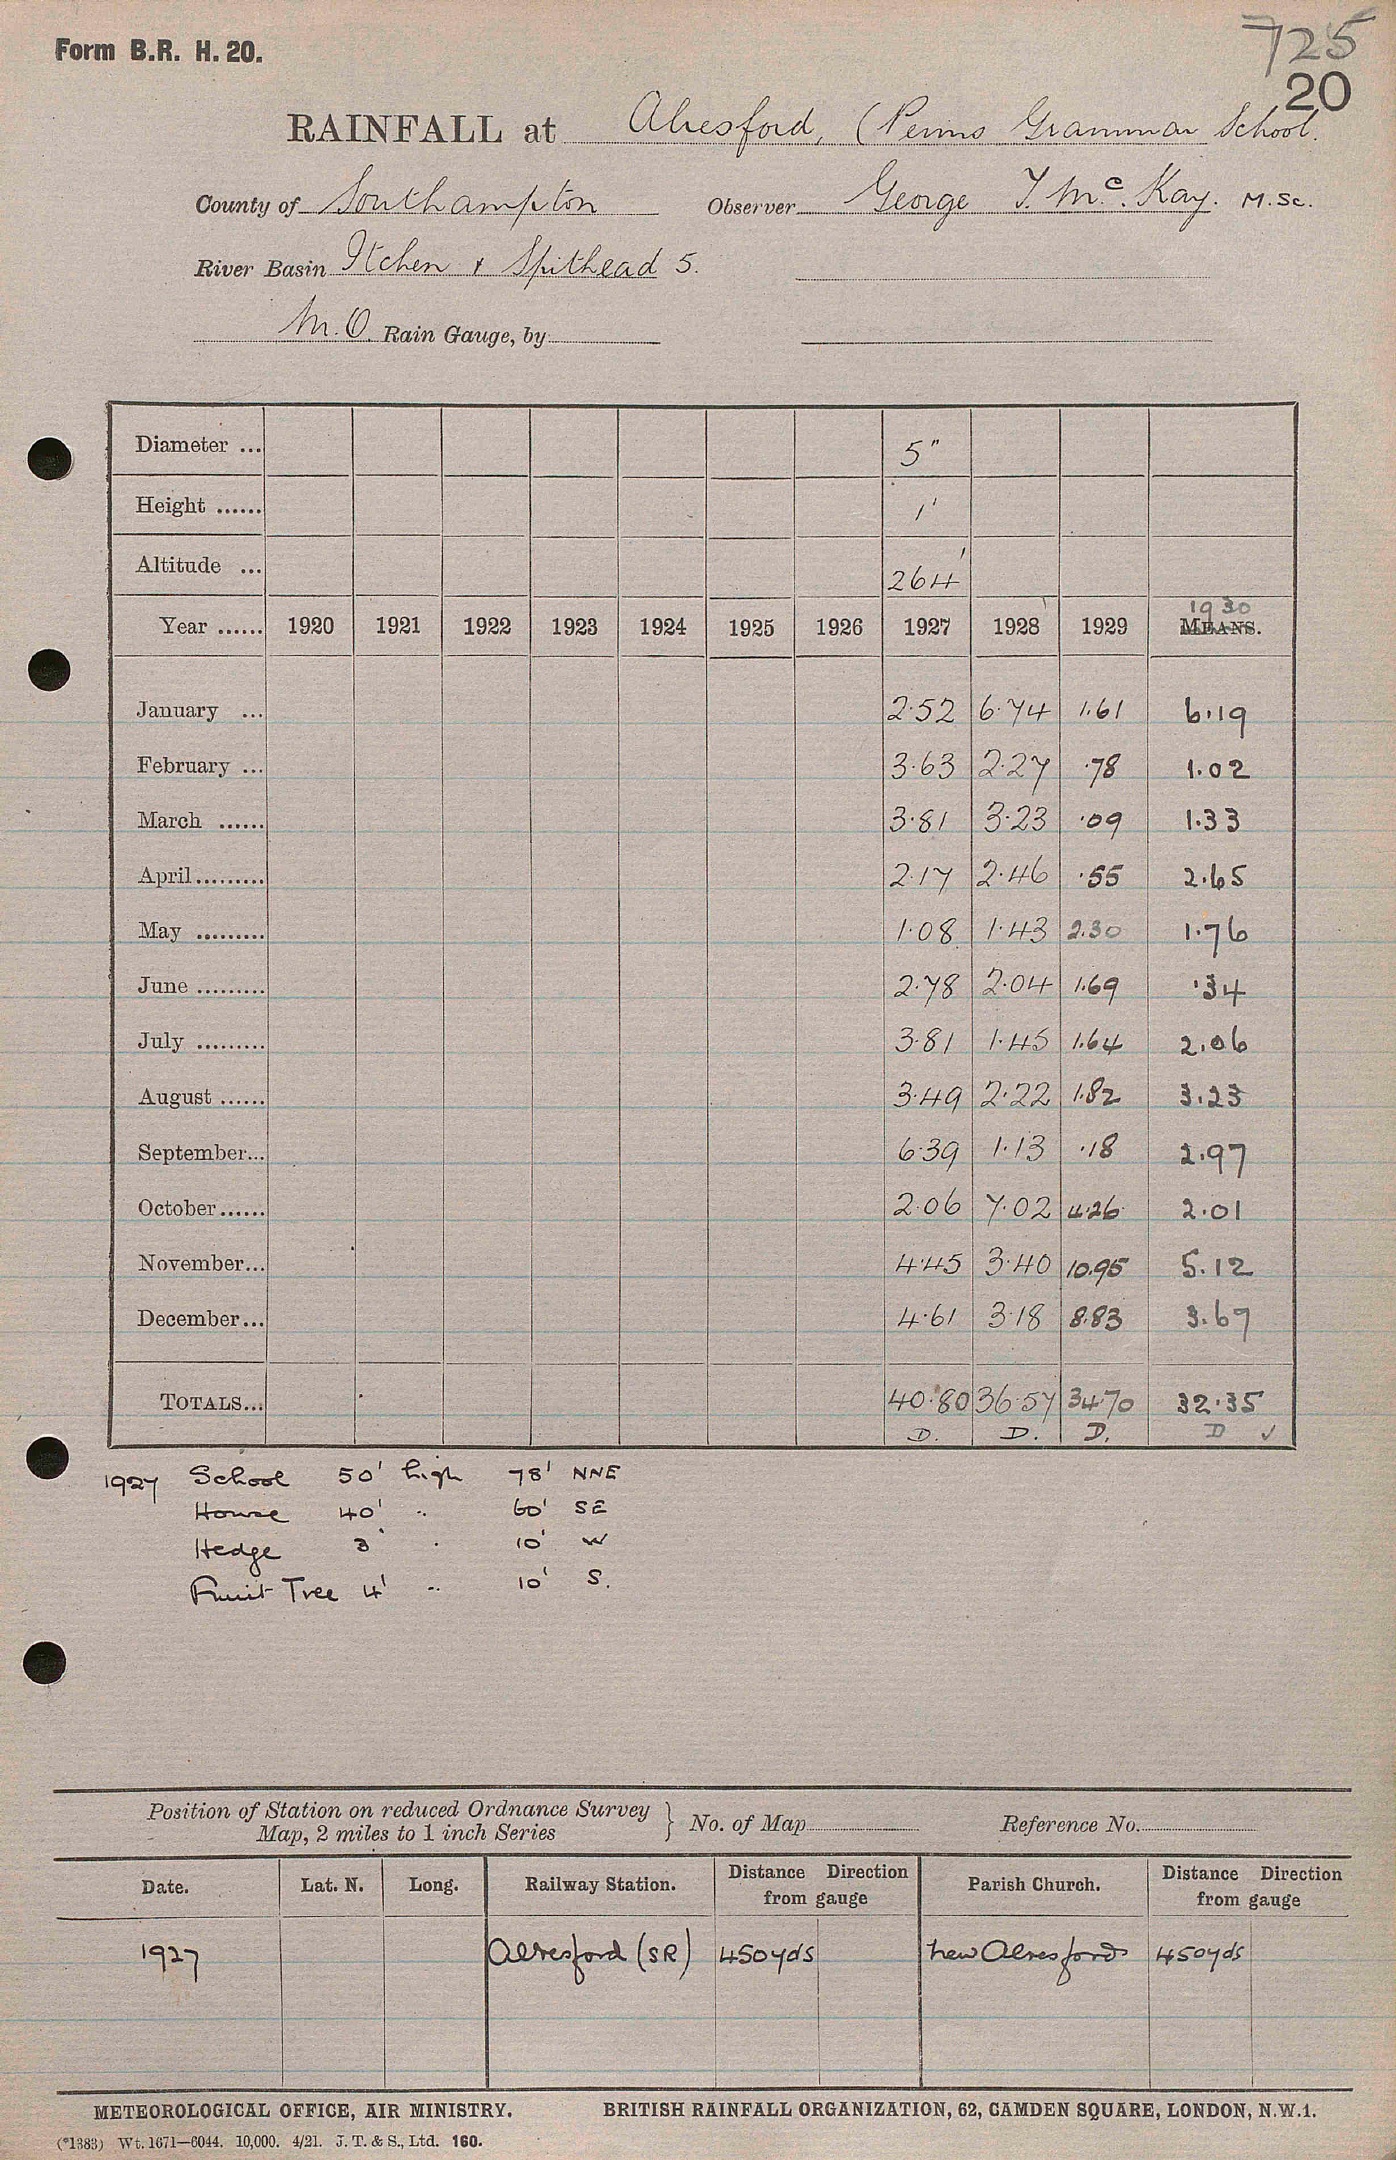 Form B.R. H. 20.
725
20
RAINFALL at Alresford, (Perins Grammar School.
County of Southampton Observer George T. Mc. Kay. M.Sc.
River Basin Itchen & Spithead 5.
M.O. Rain Gauge, by
Diameter ... 5"
Height ...... 1'
Altitude ... 264'
1930
Year ...... 1920 1921 1922 1923 1924 1925 1926 1927 1928 1929 MEANS.
January ... 2.52 6.74 1.61 6.19
February ... 3.63 2.27 .78 1.02
March ...... 3.81 3.23 .09 1.33
April ......... 2.17 2.46 .55 2.65
May ......... 1.08 1.43 2.30 1.76
June ......... 2.78 2.04 1.69 .34
July ......... 3.81 1.45 1.64 2.06
August ...... 3.49 2.22 1.82 3.23
September... 6.39 1.13 .18 2.97
October ...... 2.06 7.02 4.26 2.01
November... 4.45 3.40 10.95 5.12
December... 4.61 3.18 8.83 3.67
TOTALS... 40.80 36.57 34.70 32.35
D. D. D. D ✓
1927 School 50' high 78' NNE
House 40' " 60' SE
Hedge 3' " 10' W
Fruit Tree 4' " 10' S.
Position of Station on reduced Ordnance Survey
Map, 2 miles to 1 inch Series } No. of Map Reference No.
Date. Lat. N. Long. Railway Station. Distance Direction from gauge Parish Church. Distance Direction from gauge
1927 Alresford (SR) 450yds New Alresford 450yds
METEOROLOGICAL OFFICE, AIR MINISTRY. BRITISH RAINFALL ORGANIZATION, 62, CAMDEN SQUARE, LONDON, N.W.1.
(*1383) Wt. 1671—6044. 10,000. 4/21. J. T. & S., Ltd. 160.